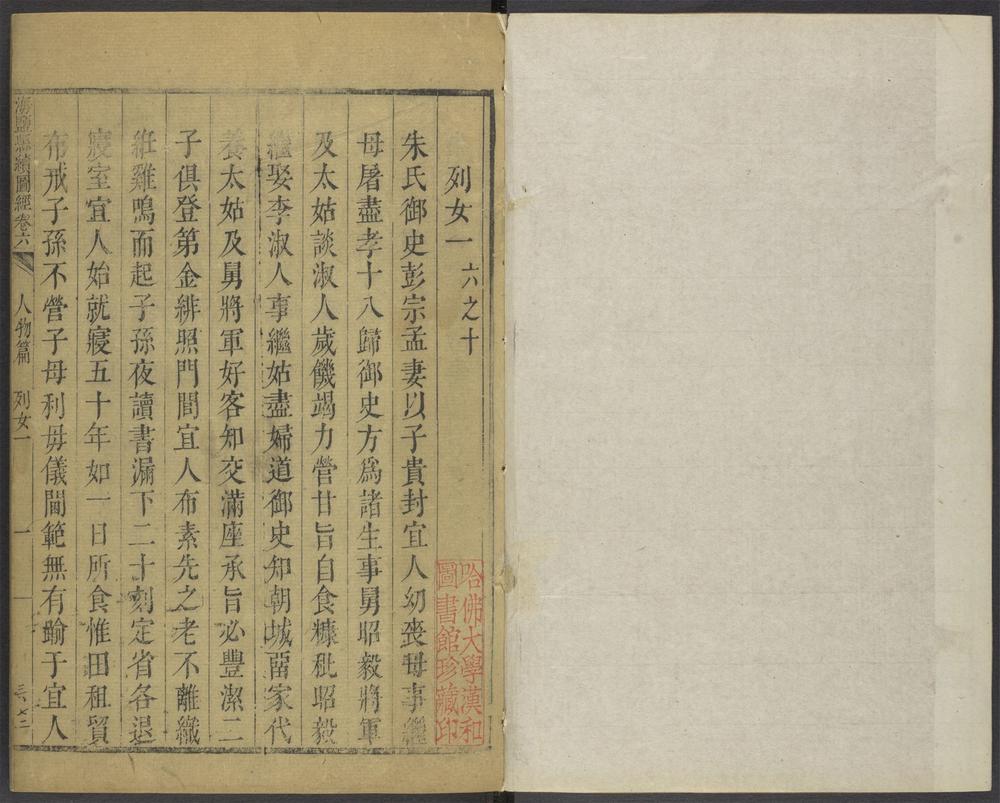 列女一 六之十
朱氏御史彭宗孟妻以子貴封宜人幼喪母事繼
母屠盡孝十八歸御史方為諸生事舅昭毅將軍
及太姑談淑人歲饑竭力營甘旨自食糠秕昭毅
繼娶李淑人事繼姑盡婦道御史知朝城畱家代
養太姑及舅將軍好客知交滿座承旨必豐潔二
子俱登第金緋照門閭宜人布素先之老不離織
絍雞鳴而起子孫夜讀書漏下二十刻定省各退
寢室宜人始就寢五十年如一日所食惟田租貿
布戒子孫不營子母利毋儀閫範無有踰于宜人
海鹽縣續圖經卷六 人物篇 列女一 一
哈佛大學漢和
圖書館珍藏印